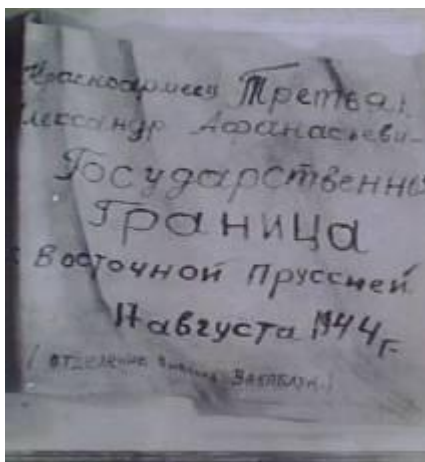 Красноармеец Третьяк
Александр Афанасьеви
Государственны
Граница
с Восточной Пруссией
17 августа 1944 г.
(отделение Закаблук)